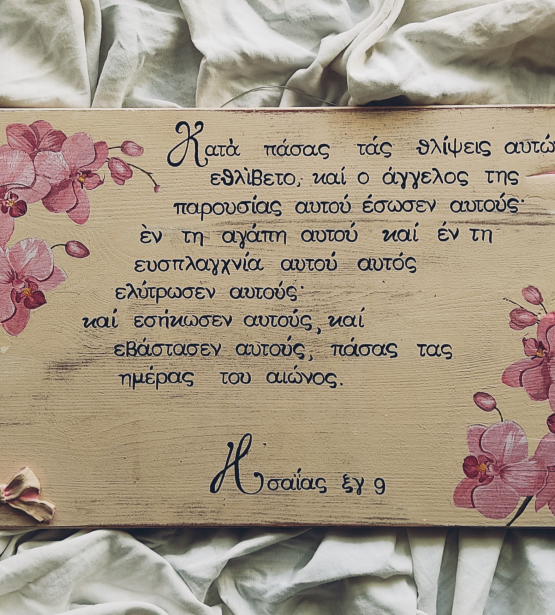 Κατὰ πάσας τάς θλίψεις αυτώ
εθλίβετο, καί ο άγγελος της
παρουσίας αυτού έσωσεν αυτούς·
ἐν τη αγάπη αυτού καί έν τη
ευσπλαγχνία αυτού αυτός
ελύτρωσεν αυτούς·
καί εσήκωσεν αυτούς, καί
εβάστασεν αυτούς, πάσας τας
ημέρας του αιώνος.
Ησαΐας ξγ 9